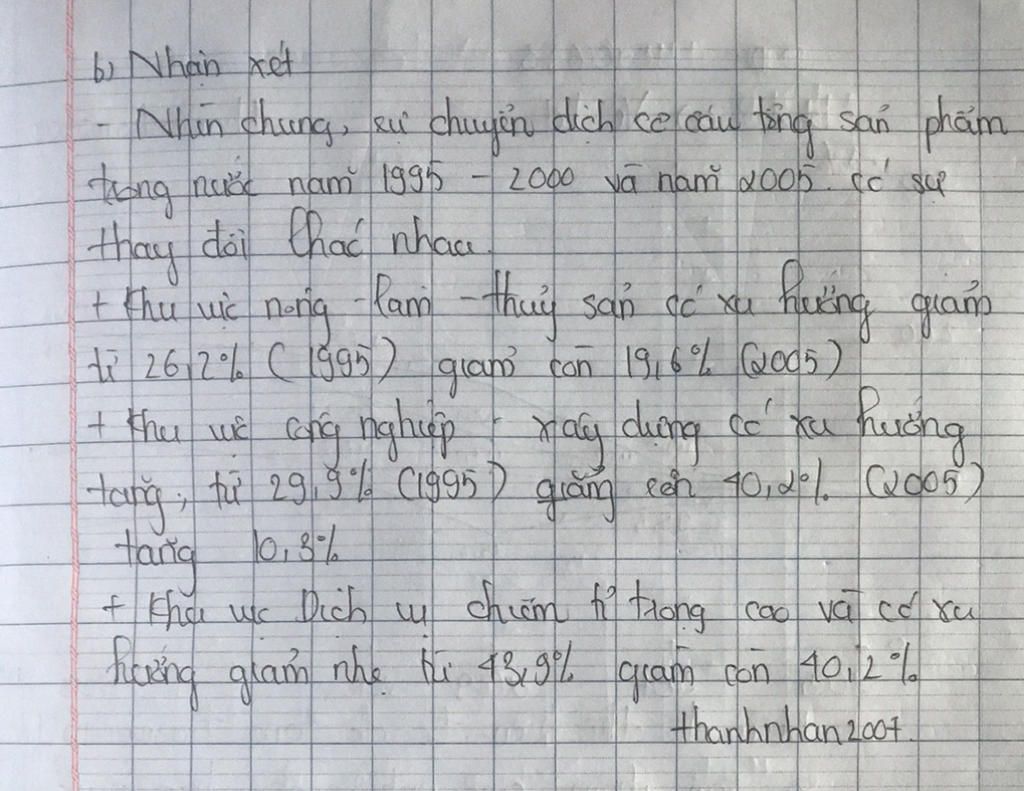 b) Nhận xét
- Nhìn chung, sự chuyển dịch cơ cấu tổng sản phẩm
trong nước năm 1995 - 2000 và năm 2005 có sự
thay đổi khác nhau.
+ Khu vực nông - lâm - thuỷ sản có xu hướng giảm
từ 26,2% (1995) giảm còn 19,6% (2005)
+ Khu vực công nghiệp - xây dựng có xu hướng
tăng, từ 29,9% (1995) giảng còn 40,2% (2005)
tăng 10,3%
+ Khu vực Dịch vụ chiếm tỉ trọng cao và có xu
hướng giảm nhẹ từ 43,9% giảm còn 40,2%
thanhnhan2007.